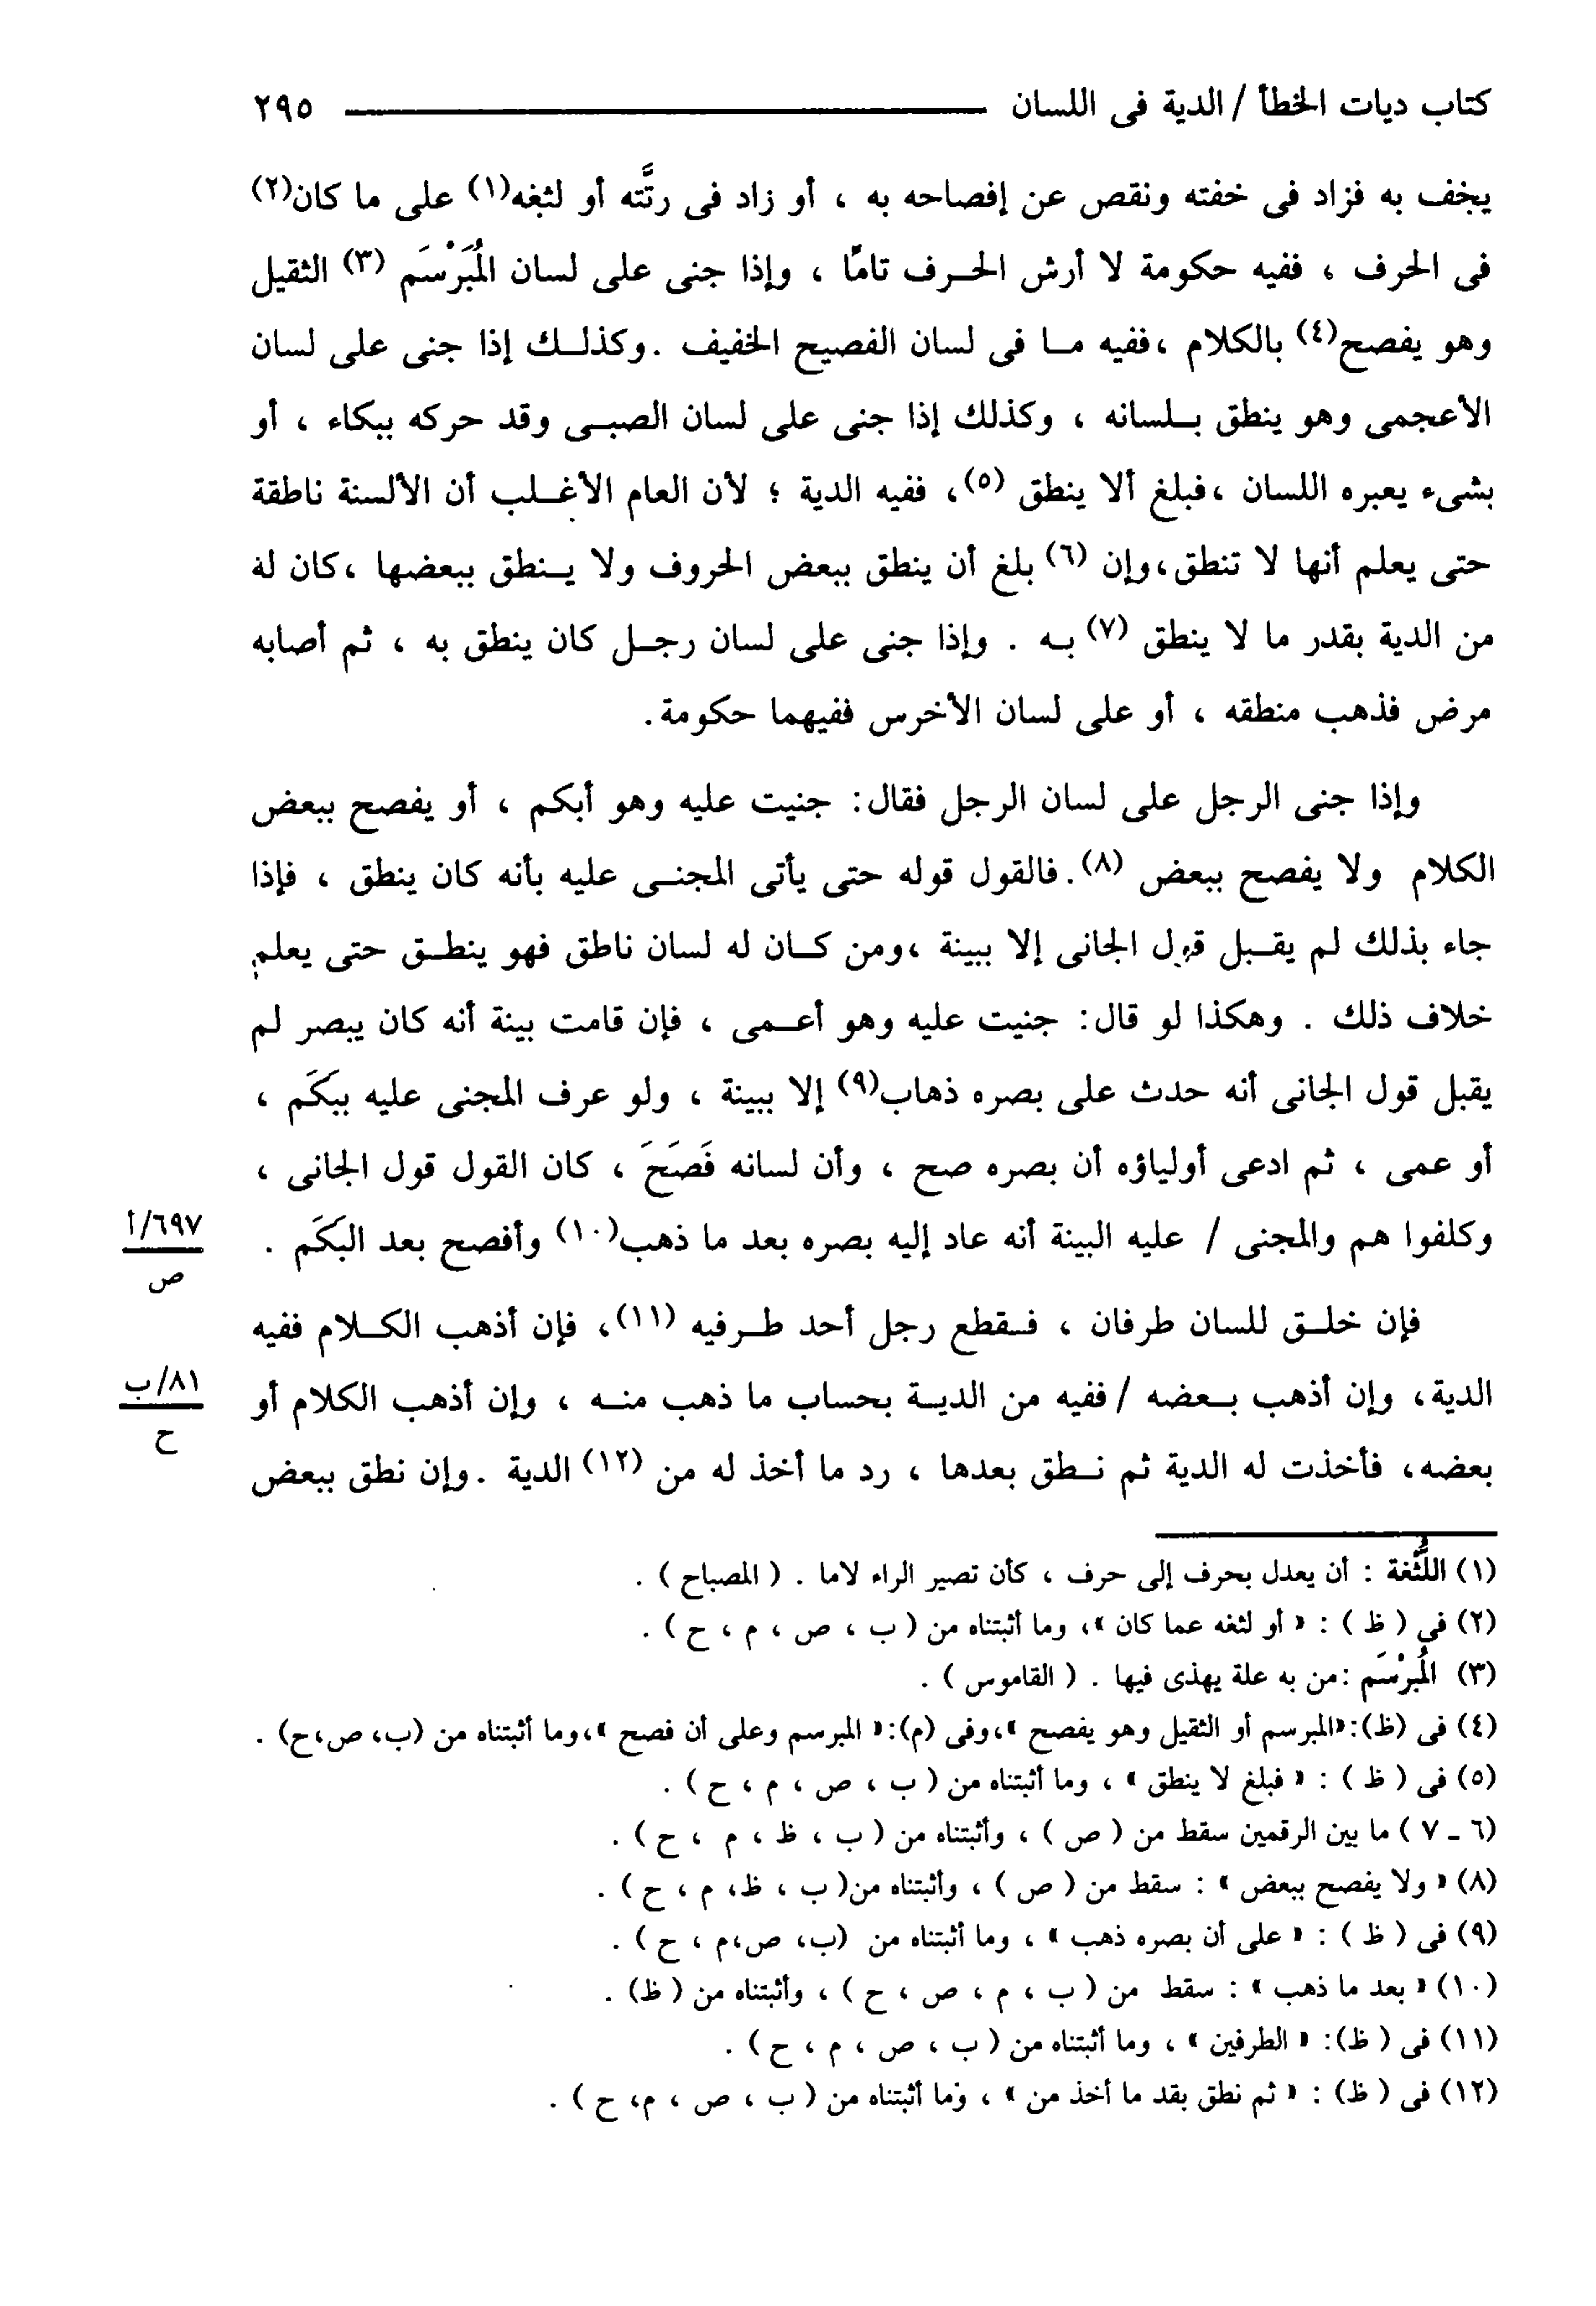 كتاب ديات الخطأ / الدية فى اللسان ٢٩٥
يخف به فزاد فى خفته ونقص عن إفصاحه به ، أو زاد فى رتَّته أو لثغه(١) على ما كان(٢)
فى الحرف ، ففيه حكومة لا أرش الحرف تامًا ، وإذا جنى على لسان المُبَرْسَم (٣) الثقيل
وهو يفصح(٤) بالكلام ،ففيه ما فى لسان الفصيح الخفيف .وكذلك إذا جنى على لسان
الأعجمى وهو ينطق بلسانه ، وكذلك إذا جنى على لسان الصبى وقد حركه ببكاء ، أو
بشىء يعبره اللسان ،فبلغ ألا ينطق (٥)، ففيه الدية ؛ لأن العام الأغلب أن الألسنة ناطقة
حتى يعلم أنها لا تنطق،وإن (٦) بلغ أن ينطق ببعض الحروف ولا ينطق ببعضها ،كان له
من الدية بقدر ما لا ينطق (٧) به . وإذا جنى على لسان رجل كان ينطق به ، ثم أصابه
مرض فذهب منطقه ، أو على لسان الأخرس ففيهما حكومة.
وإذا جنى الرجل على لسان الرجل فقال: جنيت عليه وهو أبكم ، أو يفصح ببعض
الكلام ولا يفصح ببعض (٨).فالقول قوله حتى يأتى المجنى عليه بأنه كان ينطق ، فإذا
جاء بذلك لم يقبل قول الجانى إلا ببينة ،ومن كان له لسان ناطق فهو ينطق حتى يعلم
خلاف ذلك . وهكذا لو قال: جنيت عليه وهو أعمى ، فإن قامت بينة أنه كان يبصر لم
يقبل قول الجانى أنه حدث على بصره ذهاب(٩) إلا ببينة ، ولو عرف المجنى عليه ببَكَم ،
أو عمى ، ثم ادعى أولياؤه أن بصره صح ، وأن لسانه فَصَحَ ، كان القول قول الجانى ،
وكلفوا هم والمجنى / عليه البينة أنه عاد إليه بصره بعد ما ذهب(١٠) وأفصح بعد البَكَم .
٦٩٧/أ
ص
فإن خلق للسان طرفان ، فقطع رجل أحد طرفيه (١١)، فإن أذهب الكلام ففيه
الدية، وإن أذهب بعضه / ففيه من الدية بحساب ما ذهب منه ، وإن أذهب الكلام أو
٨١/ب
ح
بعضه، فأخذت له الدية ثم نطق بعدها ، رد ما أخذ له من (١٢) الدية .وإن نطق ببعض
(١) اللُّثْغة : أن يعدل بحرف إلى حرف ، كأن تصير الراء لاما . ( المصباح ) .
(٢) فى ( ظ ) : « أو لثغه عما كان »، وما أثبتناه من ( ب ، ص ، م ، ح ) .
(٣) المُبرْسَم :من به علة يهذى فيها . ( القاموس ) .
(٤) فى (ظ):«المبرسم أو الثقيل وهو يفصح »،وفى (م):« المبرسم وعلى أن فصح »،وما أثبتناه من (ب، ص،ح) .
(٥) فى ( ظ ) : « فبلغ لا ينطق » ، وما أثبتناه من ( ب ، ص ، م ، ح ) .
(٦ ـ ٧ ) ما بين الرقمين سقط من ( ص ) ، وأثبتناه من ( ب ، ظ ، م ، ح ) .
(٨) « ولا يفصح ببعض » : سقط من ( ص ) ، وأثبتناه من( ب ، ظ، م ، ح ) .
(٩) فى ( ظ ) : « على أن بصره ذهب » ، وما أثبتناه من (ب، ص،م ، ح ) .
(١٠) « بعد ما ذهب » : سقط من ( ب ، م ، ص ، ح ) ، وأثبتناه من ( ظ) .
(١١) فى ( ظ): « الطرفين » ، وما أثبتناه من ( ب ، ص ، م ، ح ) .
(١٢) فى ( ظ) : « ثم نطق بقد ما أخذ من » ، وما أثبتناه من ( ب ، ص ، م، ح ) .